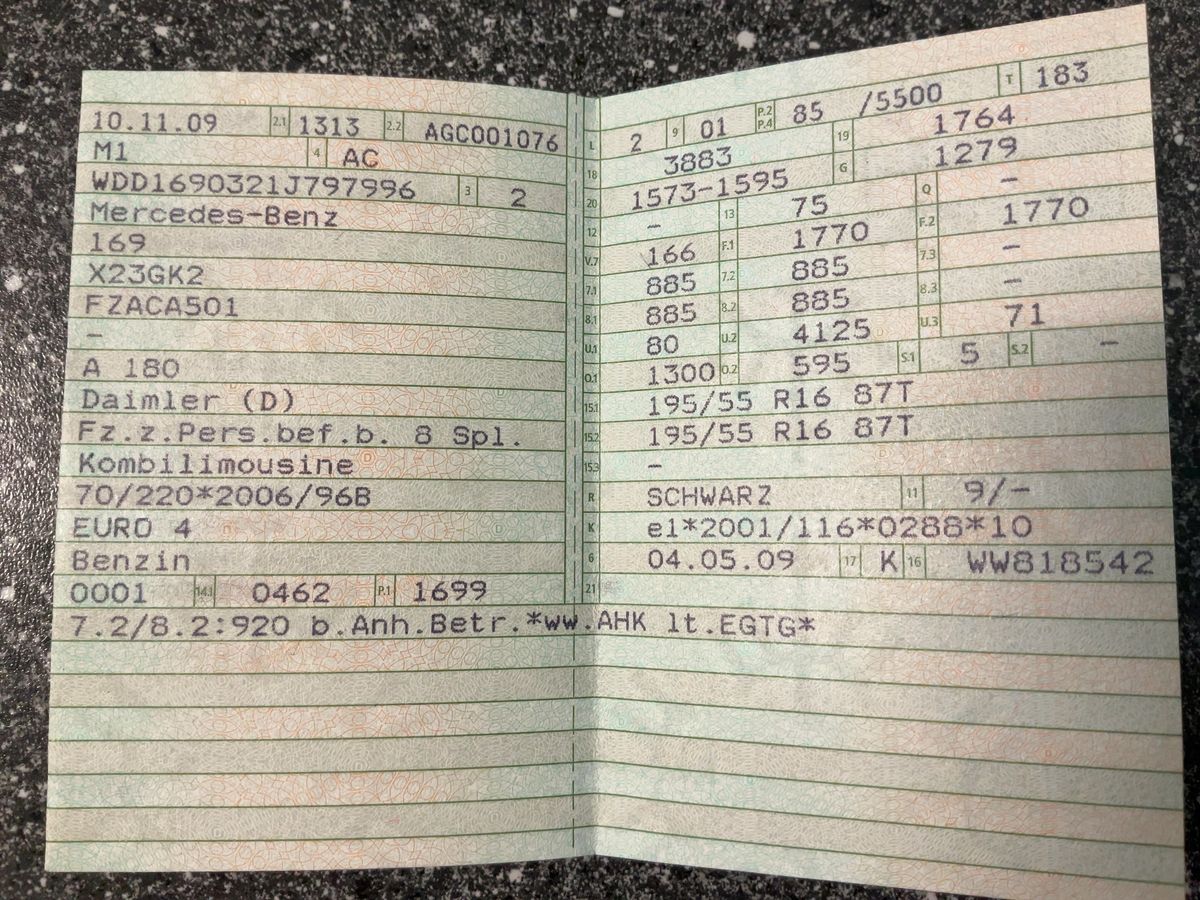 10.11.09 2.1 1313 2.2 AGC001076
M1 4 AC
WDD1690321J797996 3 2
Mercedes-Benz
169
X23GK2
FZACA501
–
A 180
Daimler (D)
Fz.z.Pers.bef.b. 8 Spl.
Kombilimousine
70/220*2006/96B
EURO 4
Benzin
0001 14.1 0462 P.1 1699
L 2 9 01 P.2 P.4 85 /5500 T 183
18 3883 19 1764
20 1573-1595 G 1279
12 – 13 75 Q –
V.7 166 F.1 1770 F.2 1770
7.1 885 7.2 885 7.3 –
8.1 885 8.2 885 8.3 –
U.1 80 U.2 4125 U.3 71
O.1 1300 O.2 595 S.1 5 S.2 –
15.1 195/55 R16 87T
15.2 195/55 R16 87T
15.3 –
R SCHWARZ 11 9/–
K e1*2001/116*0288*10
6 04.05.09 17 K 16 WW818542
21
7.2/8.2:920 b.Anh.Betr.*ww.AHK lt.EGTG*